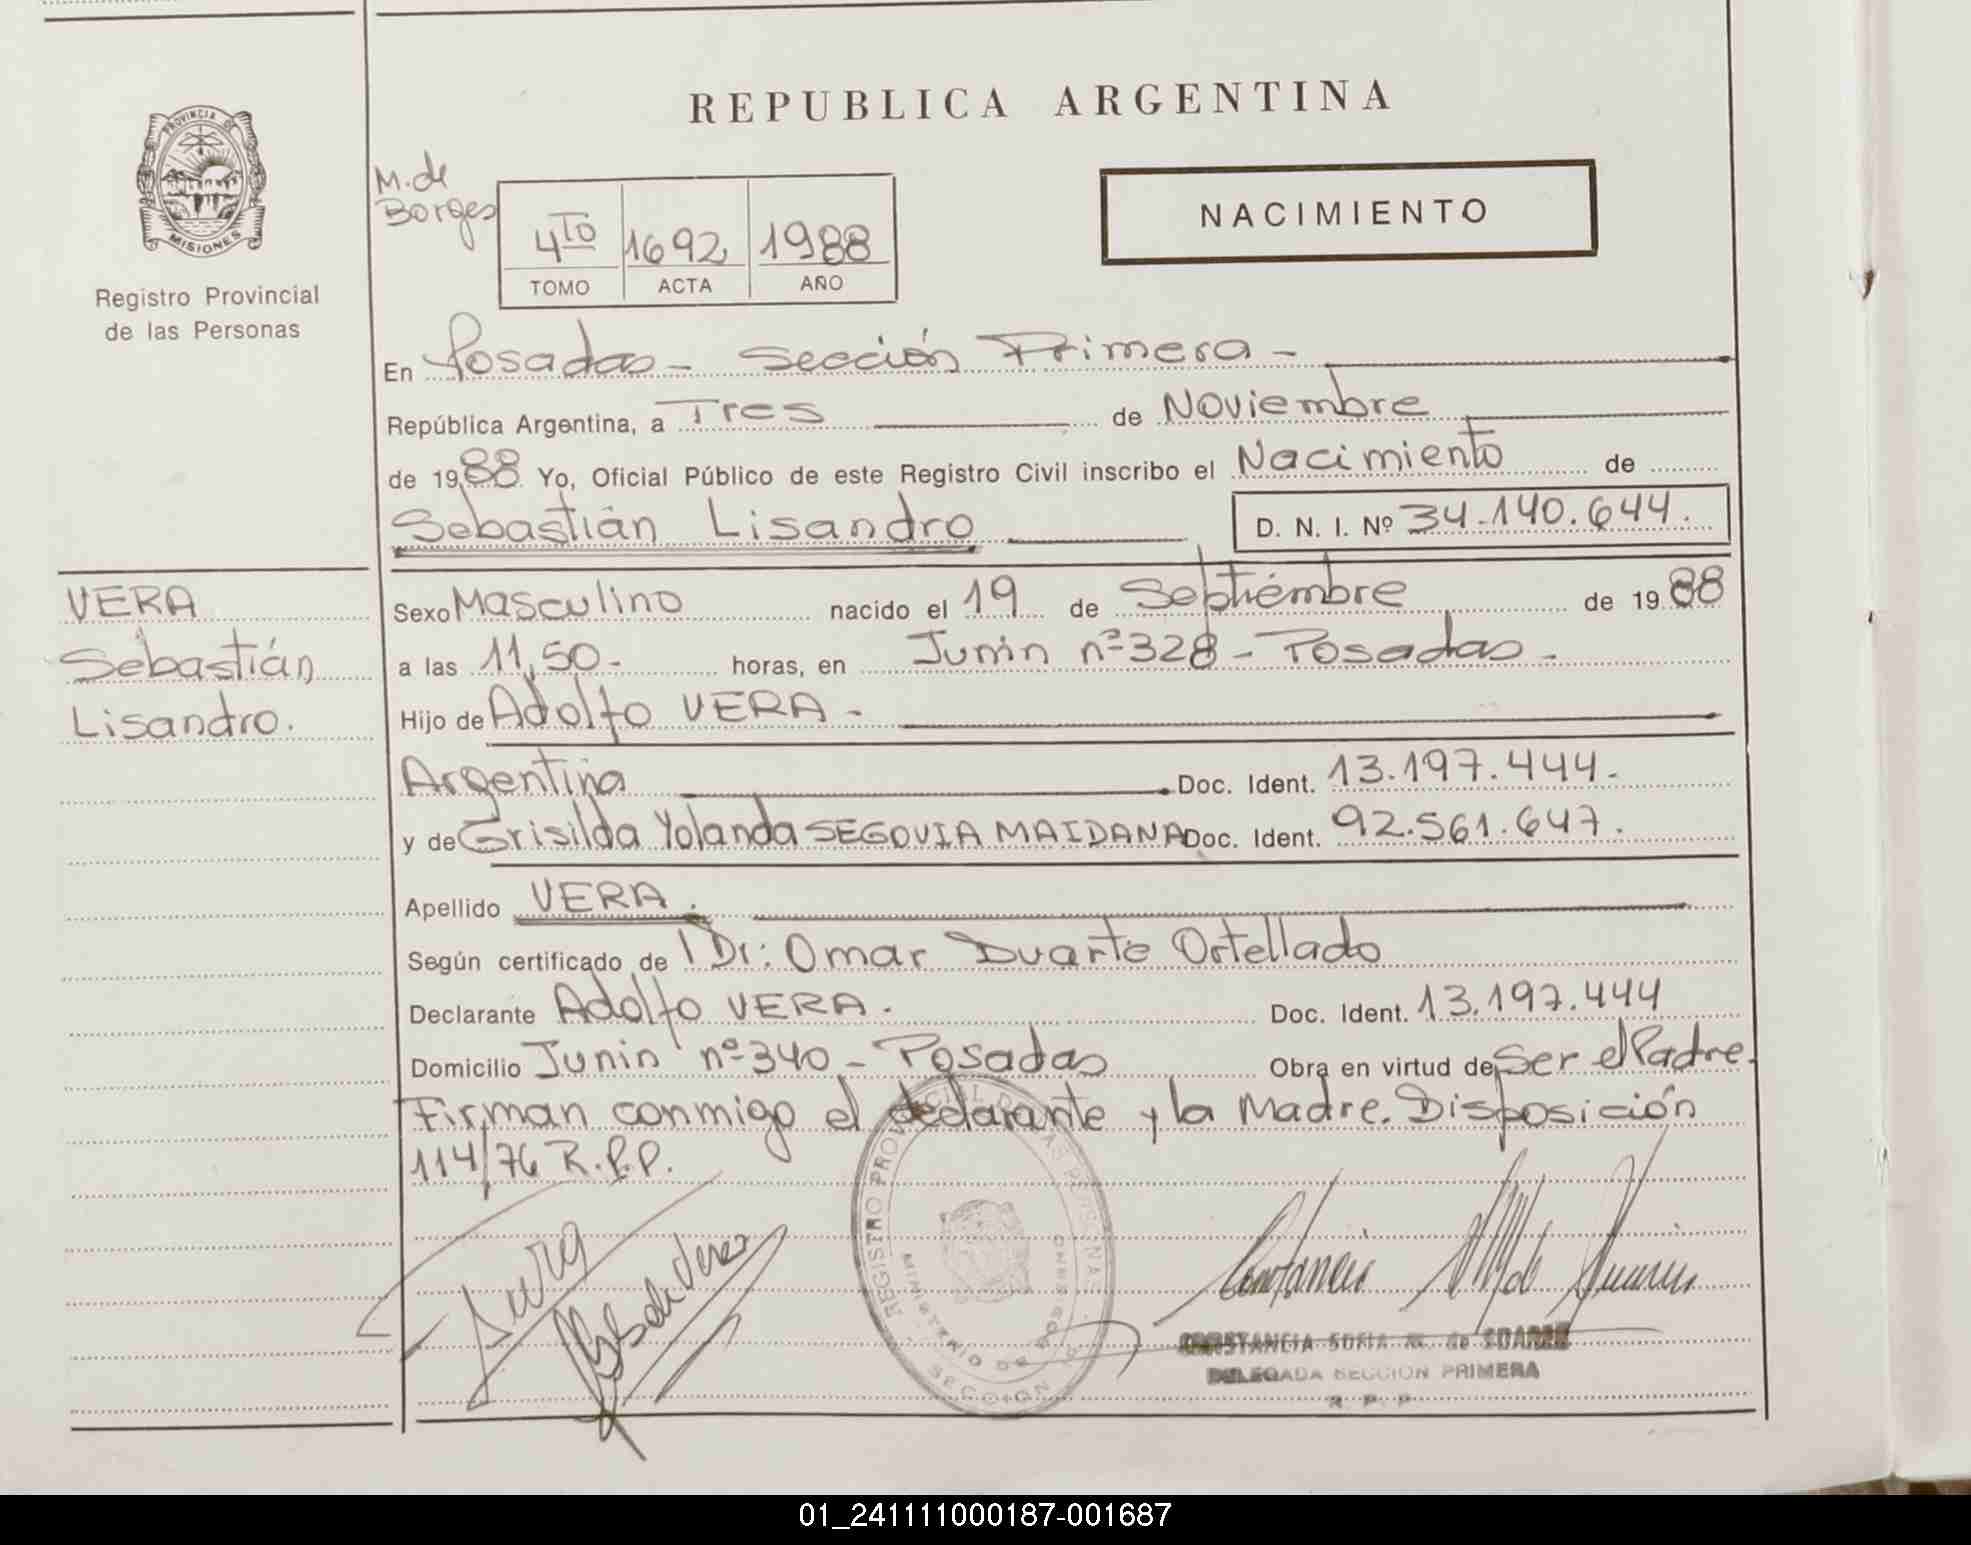 REPUBLICA ARGENTINA
PROVINCIA DE
MISIONES
Registro Provincial
de las Personas
M. de
Borges
4TO 1692 1988
TOMO ACTA AÑO
NACIMIENTO
En Posadas - Sección Primera -
República Argentina, a Tres de Noviembre
de 1988 Yo, Oficial Público de este Registro Civil inscribo el Nacimiento de
Sebastián Lisandro D. N. I. Nº 34.140.644.
VERA
Sebastián
Lisandro.
Sexo Masculino nacido el 19 de Septiembre de 1988
a las 11,50.- horas, en Junín nº 328 - Posadas -
Hijo de Adolfo VERA -
Argentina Doc. Ident. 13.197.444.
y de Grisilda Yolanda SEGOVIA MAIDANA Doc. Ident. 92.561.647.
Apellido VERA.
Según certificado de Dr: Omar Duarte Ortellado
Declarante Adolfo VERA. Doc. Ident. 13.197.444
Domicilio Junin nº 340 - Posadas Obra en virtud de Ser el Padre.
Firman conmigo el declarante y la Madre. Disposición
114/76 R.P.P.
REGISTRO PROVINCIAL DE LAS PERSONAS
MINISTERIO DE GOBIERNO
SECCION
CONSTANCIA SOFIA M. de SUAREZ
DELEGADA SECCION PRIMERA
R. P. P.
01_241111000187-001687